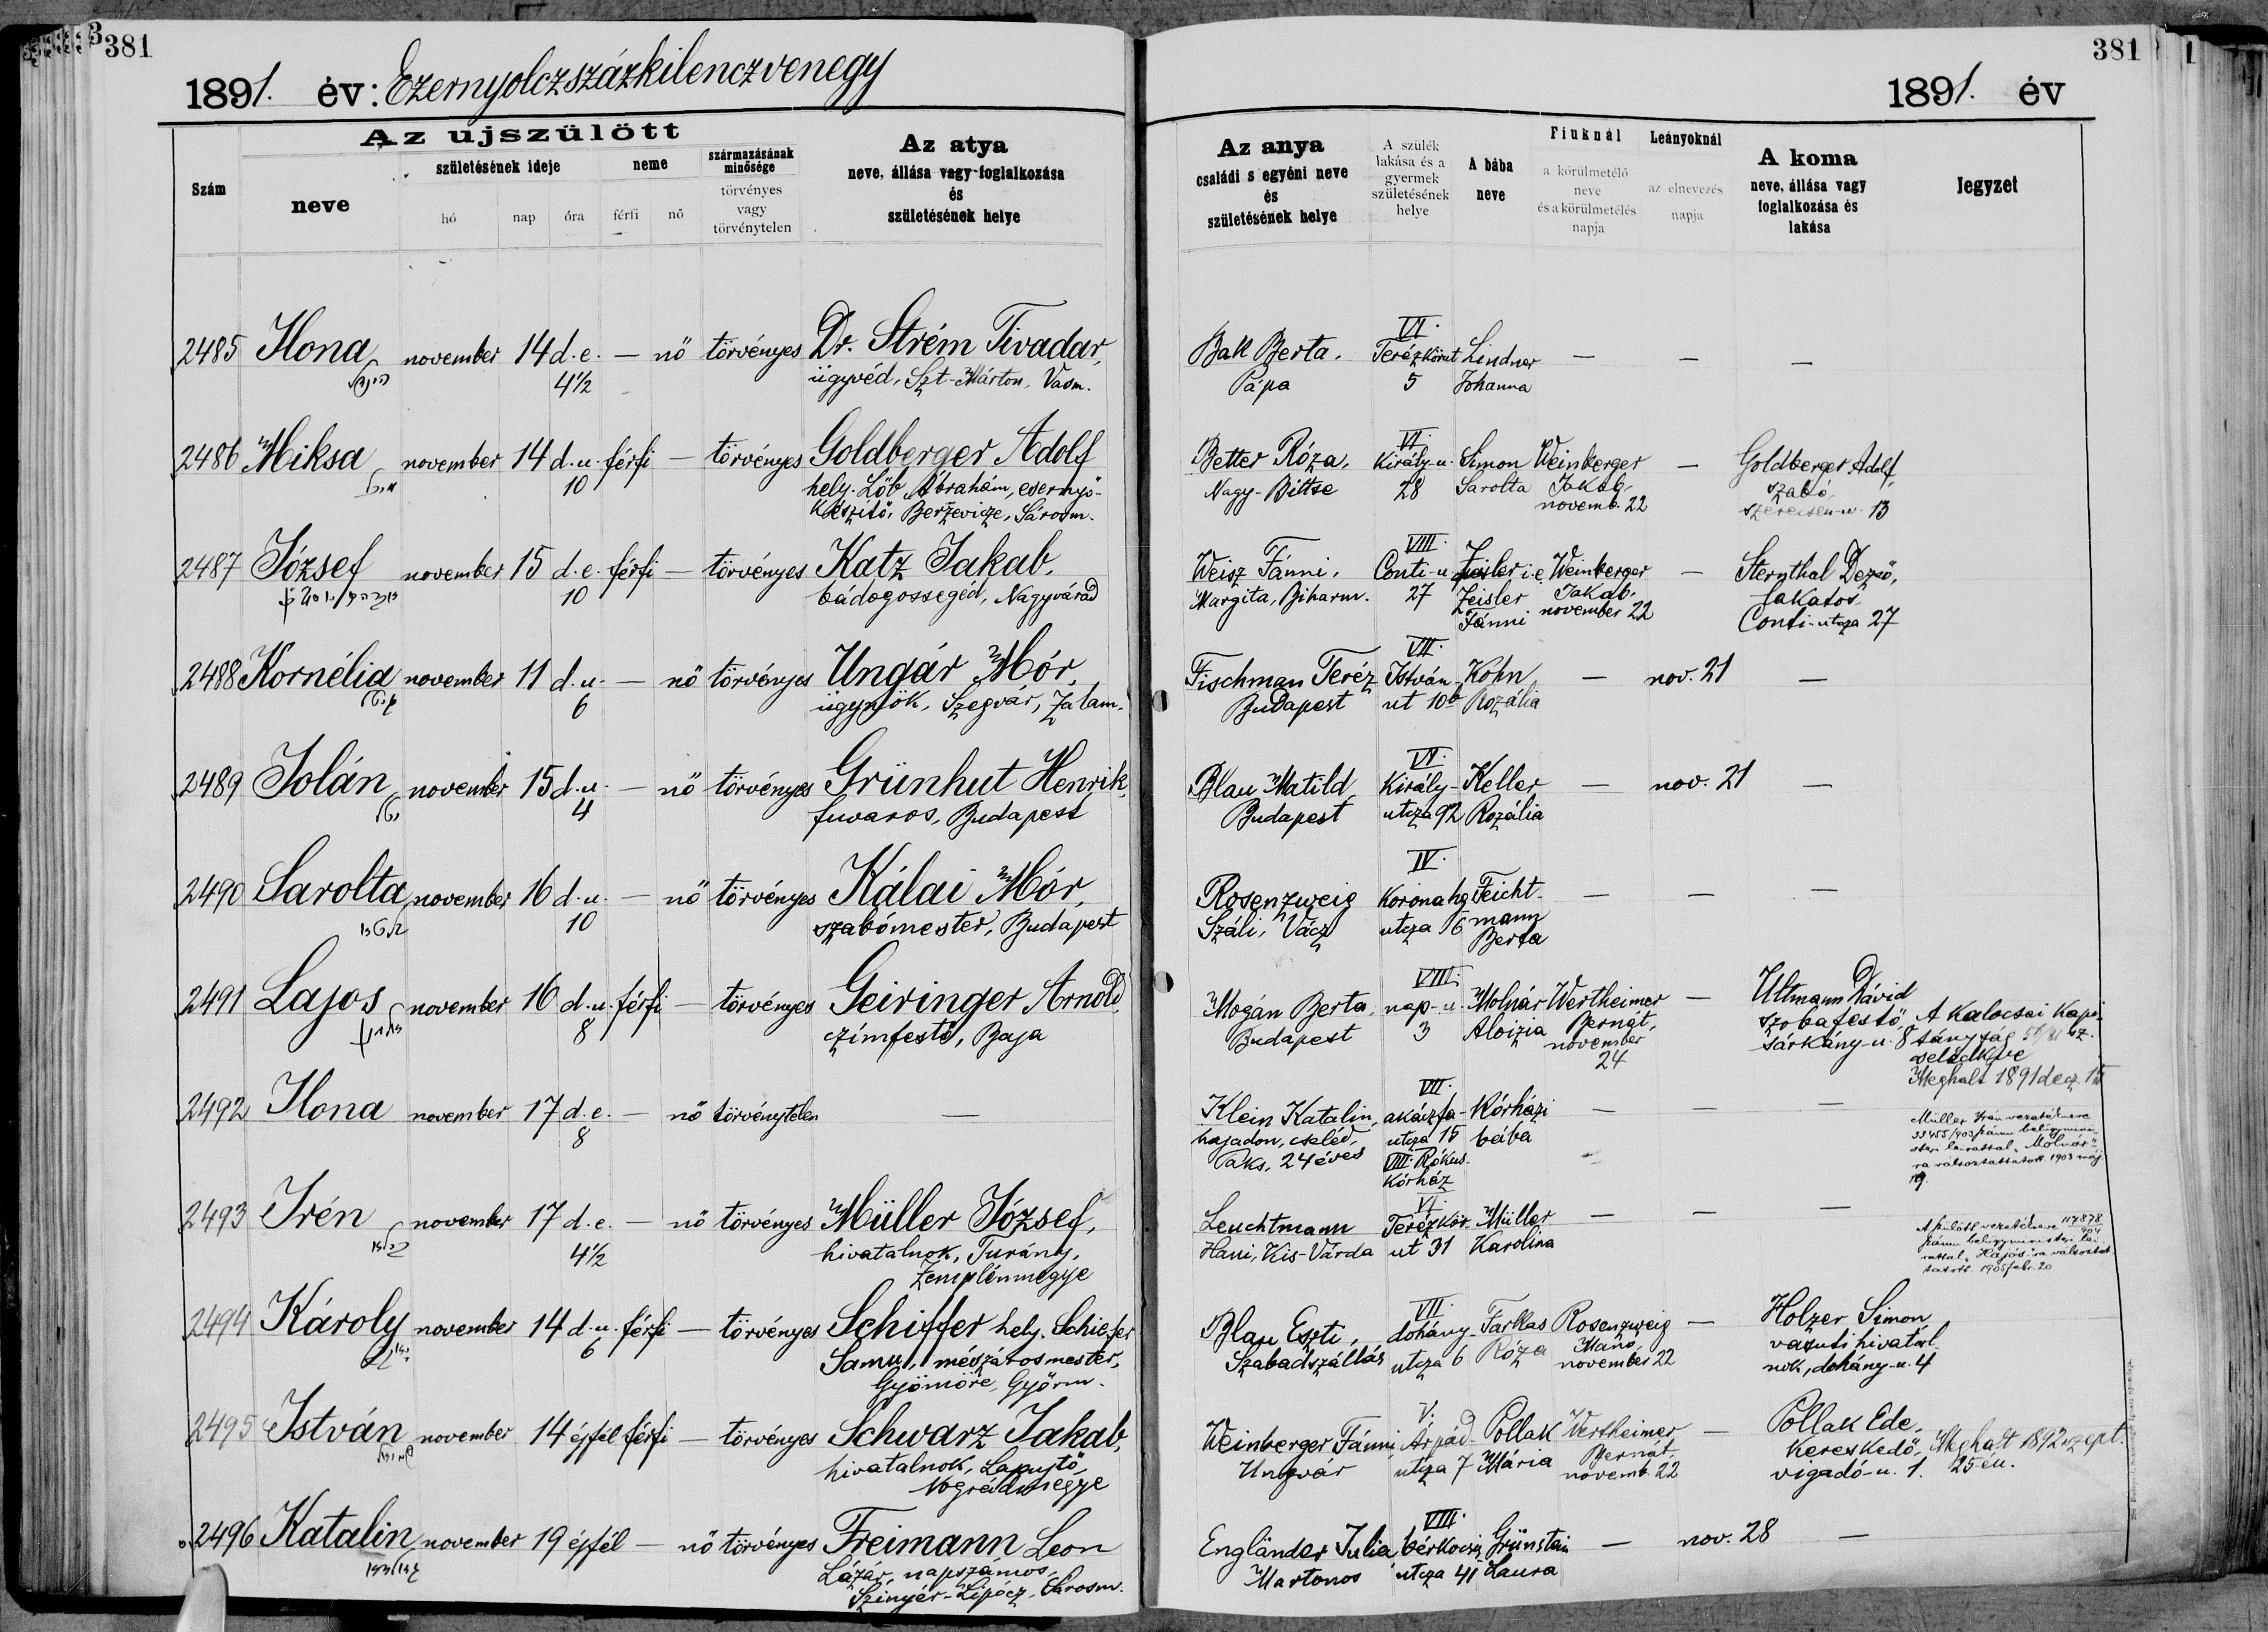 381
1891. év: Ezernyolczszázkilenczvenegy
Az ujszülött
Szám
neve
születésének ideje
hó nap óra
neme
férfi nő
származásának minősége
törvényes vagy törvénytelen
Az atya
neve, állása vagy foglalkozása
és
születésének helye
2485 Ilona november 14 d. e. — nő törvényes Dr. Strém Tivadar,
4½ ügyvéd, Szt-Márton, Vasm.
2486 Miksa november 14 d. u. férfi — törvényes Goldberger Adolf
10 hely. Löb Ábrahám, esernyő-
készítő, Berzevicze, Sárosm.
2487 József november 15 d. e. férfi — törvényes Katz Jakab,
10 bádogossegéd, Nagyvárad
2488 Kornélia november 11 d. u. — nő törvényes Ungár Mór,
6 ügynök, Szegvár, Zalam.
2489 Jolán november 15 d. u. — nő törvényes Grünhut Henrik,
4 fuvaros, Budapest
2490 Sarolta november 16 d. u. — nő törvényes Kálai Mór,
10 szabómester, Budapest
2491 Lajos november 16 d. u. férfi — törvényes Geiringer Arnold,
8 czímfestő, Baja
2492 Ilona november 17 d. e. — nő törvénytelen —
8
2493 Irén november 17 d. e. — nő törvényes Müller József,
4½ hivatalnok, Turány,
Zemplénmegye
2494 Károly november 14 d. u. férfi — törvényes Schiffer hely. Schiefer
6 Samu, mészárosmester,
Gyömöre, Győrm.
2495 István november 14 éjfél férfi — törvényes Schwarz Jakab,
hivatalnok, Lapujtő,
Nógrádmegye
2496 Katalin november 19 éjfél — nő törvényes Freimann Leon
Lázár, napszámos,
Szinyér-Lipócz, Sárosm.
381
1891. év
Az anya
családi s egyéni neve
és
születésének helye
A szülék
lakása és a
gyermek
születésének
helye
A bába
neve
Fiuknál
a körülmetélő
neve
és a körülmetélés
napja
Leányoknál
az elnevezés
napja
A koma
neve, állása vagy
foglalkozása és
lakása
Jegyzet
VI.
Bak Berta, Terézkörut Lindner — — —
Pápa 5 Johanna
VI.
Better Róza, Király-u. Simon Weinberger — Goldberger Adolf,
Nagy-Bittse 28 Sarolta Jakab, szabó,
novemb. 22 szerecsen-u. 13
VIII.
Weisz Fánni, Conti-u. Zeisler i.e. Weinberger — Sternthal Dezső,
Margita, Biharm. 27 Zeisler Jakab, lakatos
Fánni november 22 Conti-utcza 27
VII.
Fischman Teréz István- Kohn — nov. 21 —
Budapest ut 10b Rozália
VI.
Blau Matild Király- Keller — nov. 21 —
Budapest utcza 92 Rozália
IV.
Rosenzweig Korona hg Feicht- — — —
Száli, Vácz utcza 16 mann
Berta
VIII.
Mogán Berta, nap-u. Molnár Wertheimer — Ultmann Dávid
Budapest 3 Aloizia Bernát, szobafestő,
november sárkány-u. 8
24
A Kalocsai Kapi-
tányság sz.
Meghalt 1891 decz. 15
VII.
Klein Katalin, akáczfa- Kórházi — — —
hajadon, cseléd, utcza 15 bába
Paks, 24 éves VIII. Rókus-
Kórház
Müller Irén vezetékneve
33455/903 számu belügymini-
steri leirattal „Molnár"-
ra változtattatott. 1903 máj
19.
VI.
Leuchtmann Terézkör- Müller — — —
Hani, Kis-Várda ut 31 Karolina
A szülött vezetékneve 117878/904
számu belügyministeri lei-
rattal „Hajós"-ra változtat-
tatott. 1905 febr. 20
VII.
Blau Eszti, dohány- Farkas Rosenzweig — Holzer Simon,
Szabadszállás utcza 6 Róza Manó, vasuti hivatal-
november 22 nok, dohány-u. 4
V.
Weinberger Fánni, Árpád- Pollak Wertheimer — Pollak Ede,
Ungvár utcza 7 Mária Bernát, kereskedő,
novemb. 22 vigadó-u. 1.
Meghalt 1892 szept.
25-én.
VIII.
Engländer Julia bérkocsis Grünstein — nov. 28 —
Martonos utcza 41 Laura